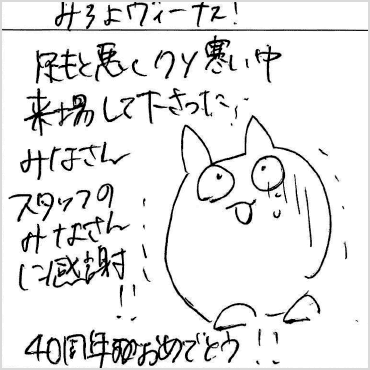 みろよヴィーナス!
足もと悪くクソ寒い中
来場して下さった
みなさん
スタッフの
みなさん
に感謝
!!
40周年おめでとう!!